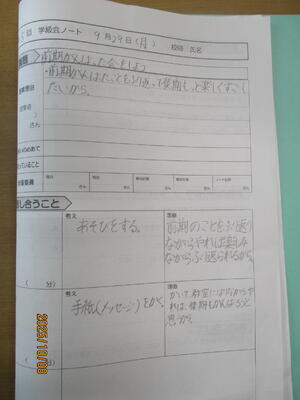 学級会ノート 9月29日(月) 校時 氏名
前期がんばった会をしよう
・前期がんばったことをふり返って後期もっと楽しくすごし
たいから。
提案理由
さん
めあて
司会
さん
さん
さん
さん
さん
し合うこと
考え
あそびをする。
理由
前期のことをふり返り
ながらやれば楽しみ
ながらふり返られるから。
(　分)
考え
手紙(メッセージ)をかく。
理由
かいて、教室にはりながらや
れば、後期もがんばろうと
思うから。
(　分)
2025/10/09